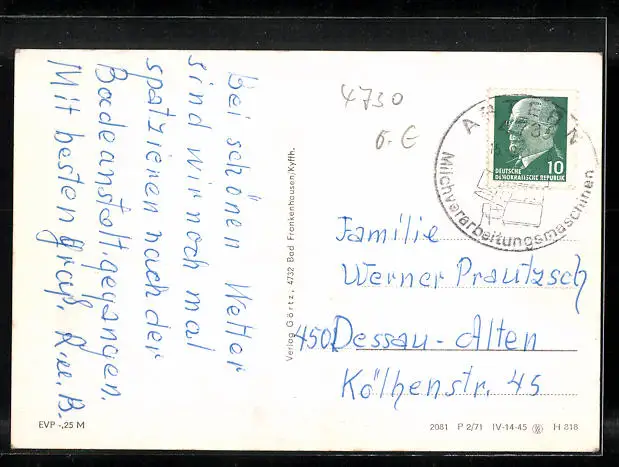 Bei schönen Wetter
sind wir noch mal
spatzieren nach der
Badeanstalt gegangen.
Mit besten Gruß. R.u.B.
Verlag Görtz, 4732 Bad Frankenhausen/Kyffh.
4730
6.- €
ARTERN
473
Milchverarbeitungsmaschinen
10
DEUTSCHE
DEMOKRATISCHE REPUBLIK
Familie
Werner Prautzsch
450 Dessau-Alten
Köthenstr. 45
EVP -,25 M
2081 P 2/71 IV-14-45 H 818